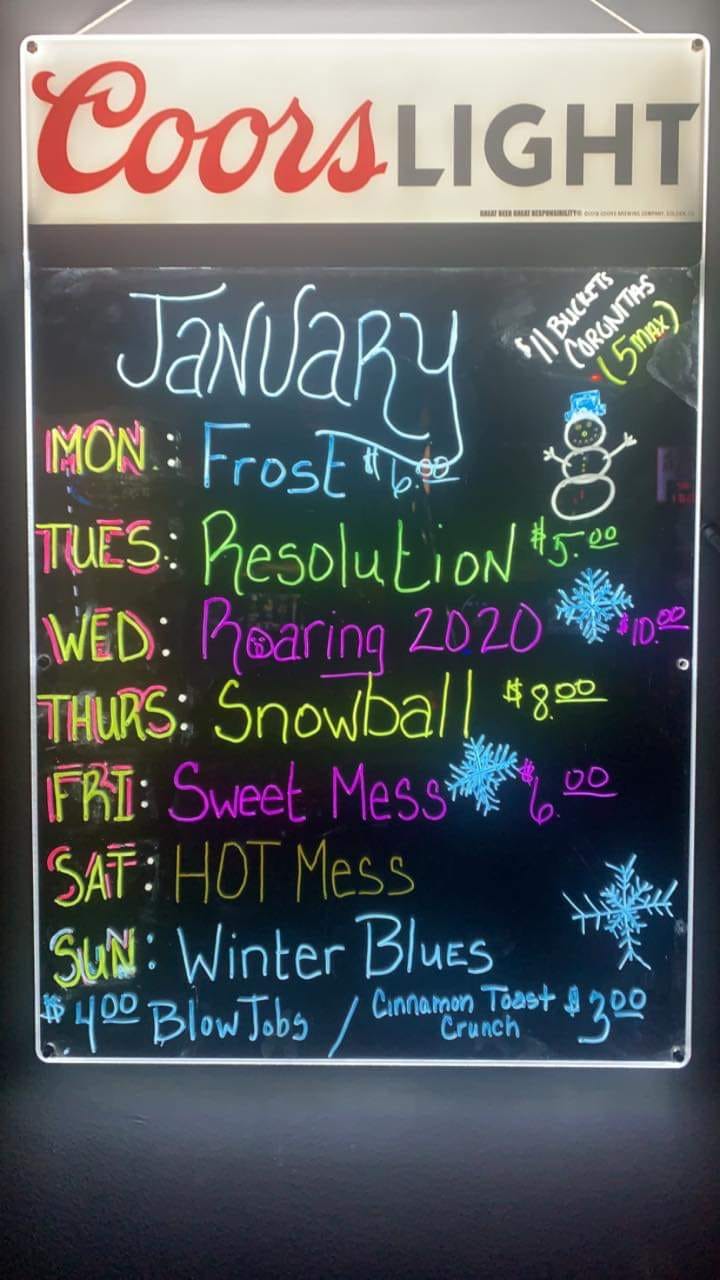 Coors LIGHT
GREAT BEER GREAT RESPONSIBILITY®
January
$11 BUCKETS
CORONITAS
(5 MAX)
MON.: Frost $6.00
TUES.: Resolution $5.00
WED: Roaring 2020 $10.00
THURS: Snowball $8.00
FRI: Sweet Mess $6.00
SAT: HOT Mess
SUN: Winter Blues
$4.00 Blow Jobs / Cinnamon Toast Crunch $3.00